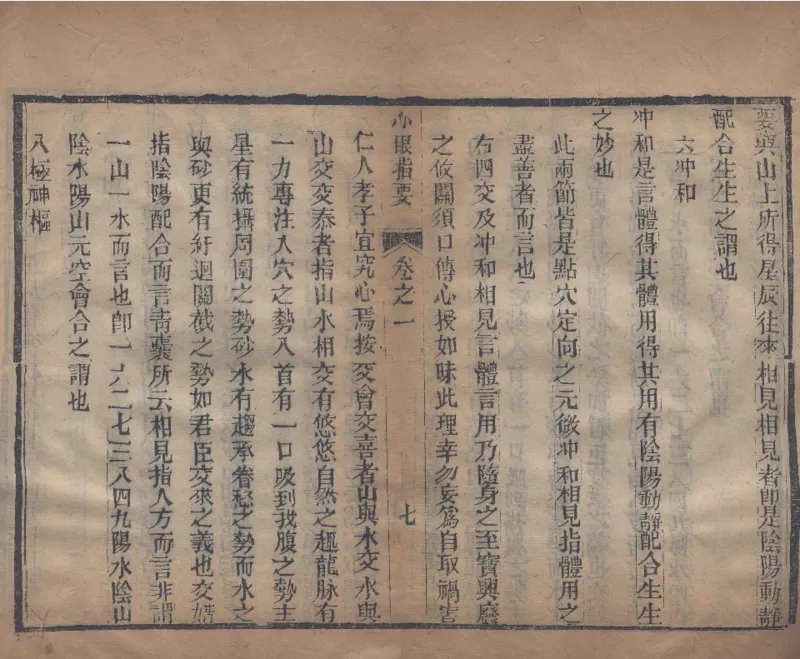 要與山上所得星辰往來相見相見者卽是陰陽動靜
配合生生之謂也
六冲和
冲和是言體得其體用得其用有陰陽動靜配合生生
之妙也
此兩節皆是點穴定向之元微冲和相見指體用之
盡善者而言也
右四交及冲和相見言體言用乃隨身之至寶興廢
之攸關須口傳心授如昧此理幸勿妄爲自取禍害
心眼指要
卷之一
七
仁人孝子宜究心焉按交曾交喜者山與水交水與
山交交泰者指山水相交有悠悠自然之趣龍脉有
一力專注入穴之勢入首有一口吸到我腹之勢主
星有統攝周圍之勢砂水有趨承眷戀之勢而水之
與砂更有紆迴關截之勢如君臣交來之義也交媾
指陰陽配合而言靑囊所云相見指人方而言非謂
一山一水而言也卽一六二七三八四九陽水陰山
陰水陽山元空會合之謂也
八極神樞